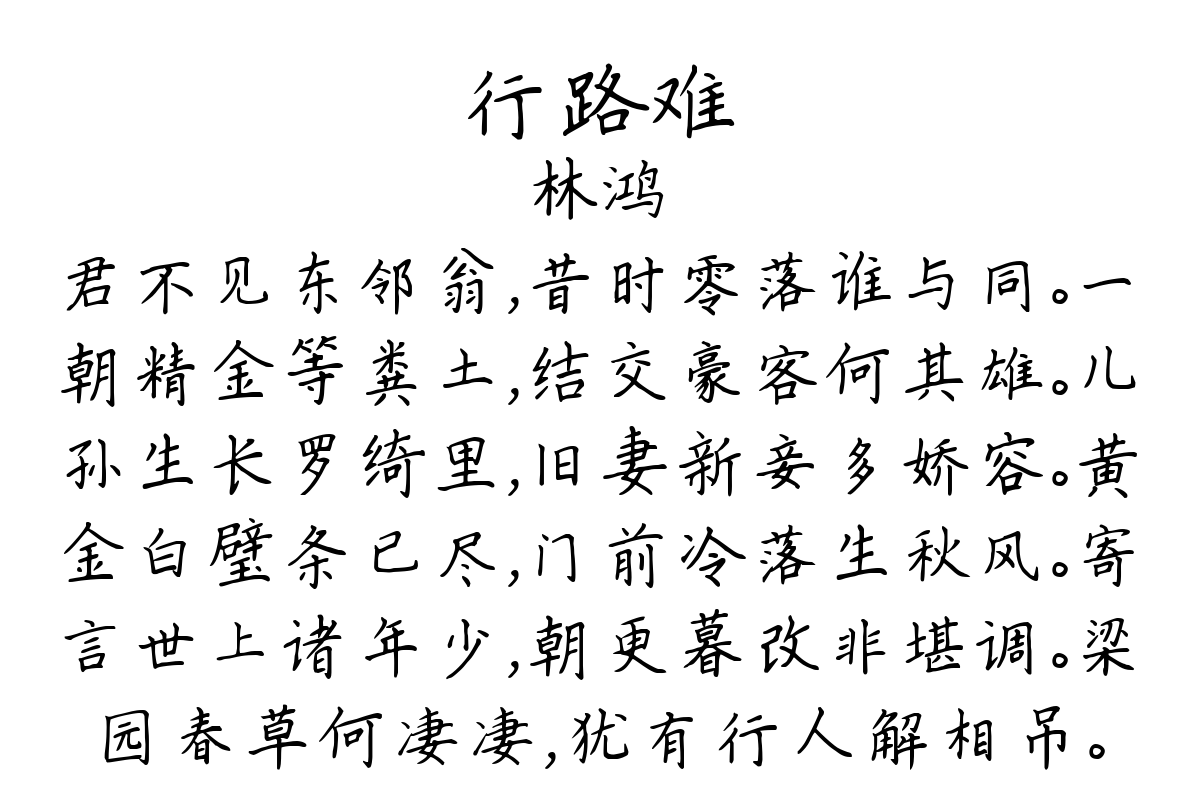 行路难
林鸿
君不见东邻翁,昔时零落谁与同。一
朝精金等粪土,结交豪客何其雄。儿
孙生长罗绮里,旧妻新妾多娇容。黄
金白璧条已尽,门前冷落生秋风。寄
言世上诸年少,朝更暮改非堪调。梁
园春草何凄凄,犹有行人解相吊。